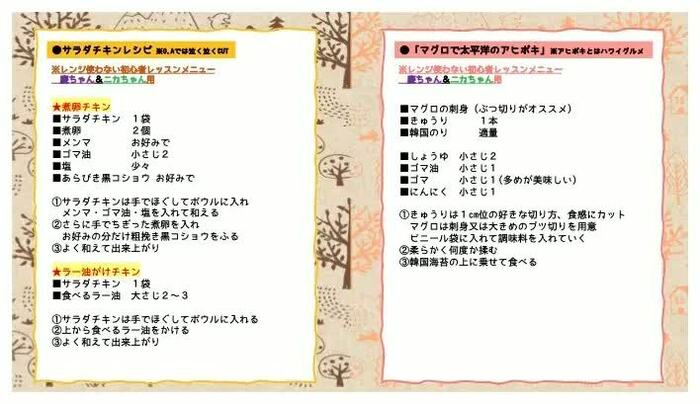 ●サラダチキンレシピ ※O.Aでは泣く泣くCUT
※レンジ使わない初心者レッスンメニュー
慶ちゃん&ニカちゃん用
★煮卵チキン
■サラダチキン 1袋
■煮卵 2個
■メンマ お好みで
■ゴマ油 小さじ2
■塩 少々
■あらびき黒コショウ お好みで
①サラダチキンは手でほぐしてボウルに入れ
メンマ・ゴマ油・塩を入れて和える
②さらに手でちぎった煮卵を入れ
お好みの分だけ粗挽き黒コショウをふる
③よく和えて出来上がり
★ラー油がけチキン
■サラダチキン 1袋
■食べるラー油 大さじ2~3
①サラダチキンは手でほぐしてボウルに入れる
②上から食べるラー油をかける
③よく和えて出来上がり
●「マグロで太平洋のアヒポキ」※アヒポキとはハワイグルメ
※レンジ使わない初心者レッスンメニュー
慶ちゃん&ニカちゃん用
■マグロの刺身(ぶつ切りがオススメ)
■きゅうり 1本
■韓国のり 適量
■しょうゆ 小さじ2
■ゴマ油 小さじ1
■ゴマ 小さじ1(多めが美味しい)
■にんにく 小さじ1
①きゅうりは1cm位の好きな切り方、食感にカット
マグロは刺身又は大きめのブツ切りを用意
ビニール袋に入れて調味料を入れていく
②柔らかく何度か揉む
③韓国海苔の上に乗せて食べる